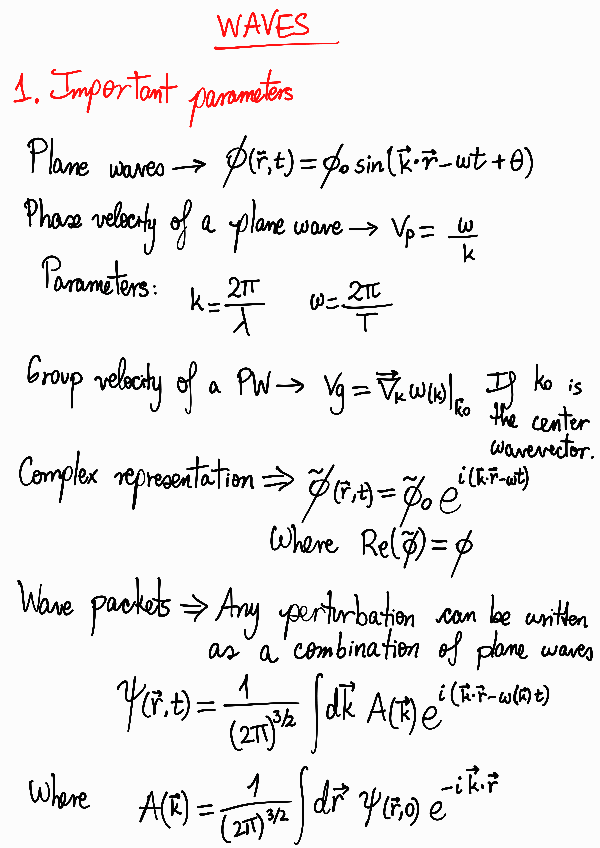 WAVES
1. Important parameters
Plane waves → ϕ(r⃗,t) = ϕ₀ sin(k⃗·r⃗ − ωt + θ)
Phase velocity of a plane wave → Vp = ω/k
Parameters: k = 2π/λ ω = 2π/T
Group velocity of a PW → Vg = ∇⃗ₖ ω(k)|k⃗₀ If k₀ is
the center
wavevector.
Complex representation ⇒ ϕ̃(r⃗,t) = ϕ̃₀ e^{i(k⃗·r⃗−ωt)}
Where Re(ϕ̃) = ϕ
Wave packets ⇒ Any perturbation can be written
as a combination of plane waves
Ψ(r⃗,t) = 1/(2π)^{3/2} ∫dk⃗ A(k⃗) e^{i(k⃗·r⃗−ω(k⃗)t)}
Where A(k⃗) = 1/(2π)^{3/2} ∫dr⃗ Ψ(r⃗,0) e^{−ik⃗·r⃗}